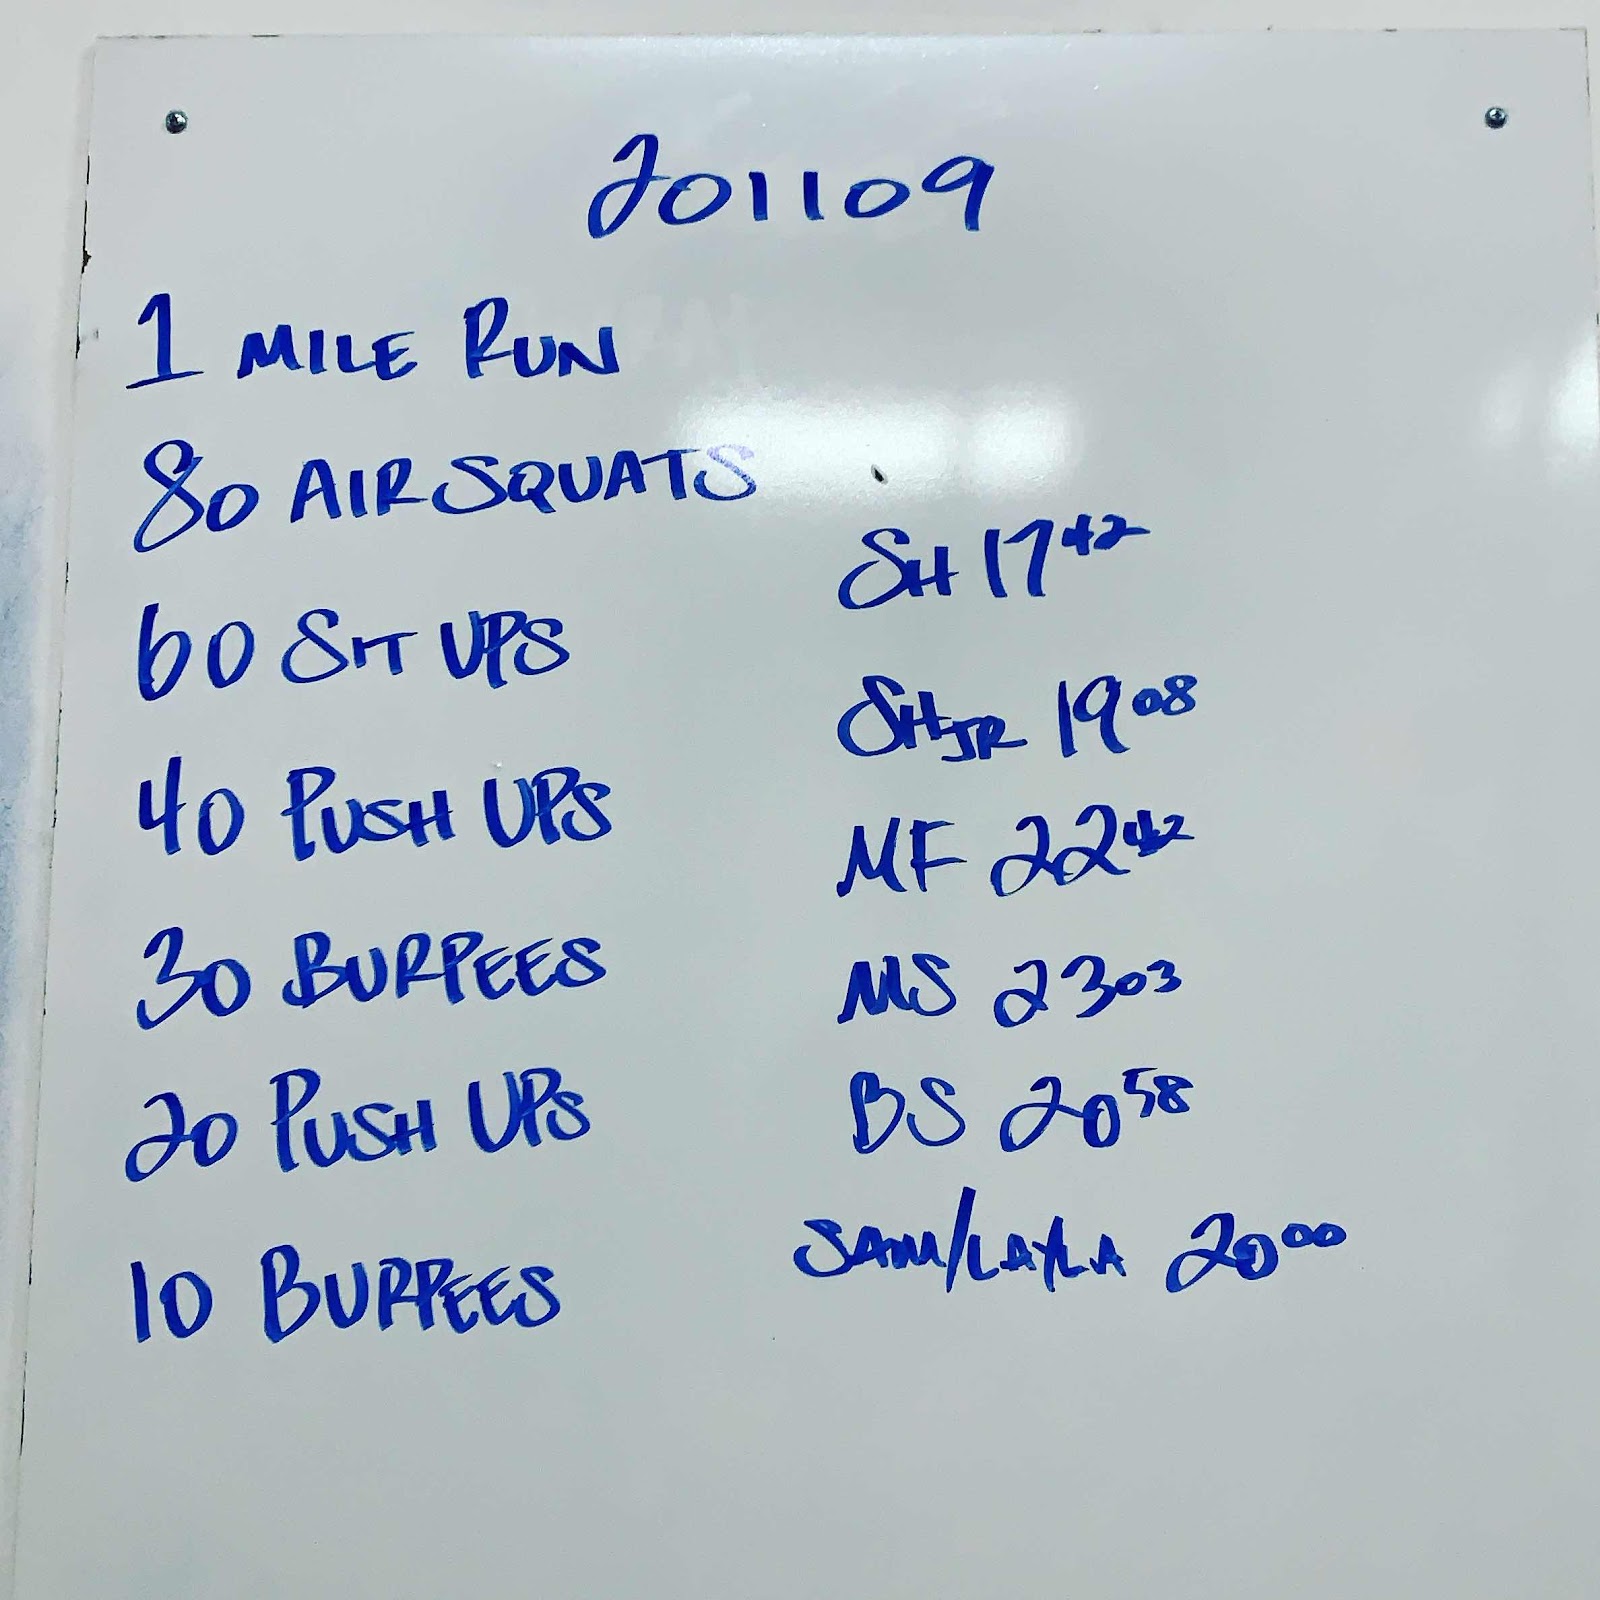 201109
1 MILE RUN
80 AIR SQUATS
60 SIT UPS
40 PUSH UPS
30 BURPEES
20 PUSH UPS
10 BURPEES
SH 17 42
SH JR 19 08
MF 22 42
MS 23 03
BS 20 58
SAM/LAYLA 20 00